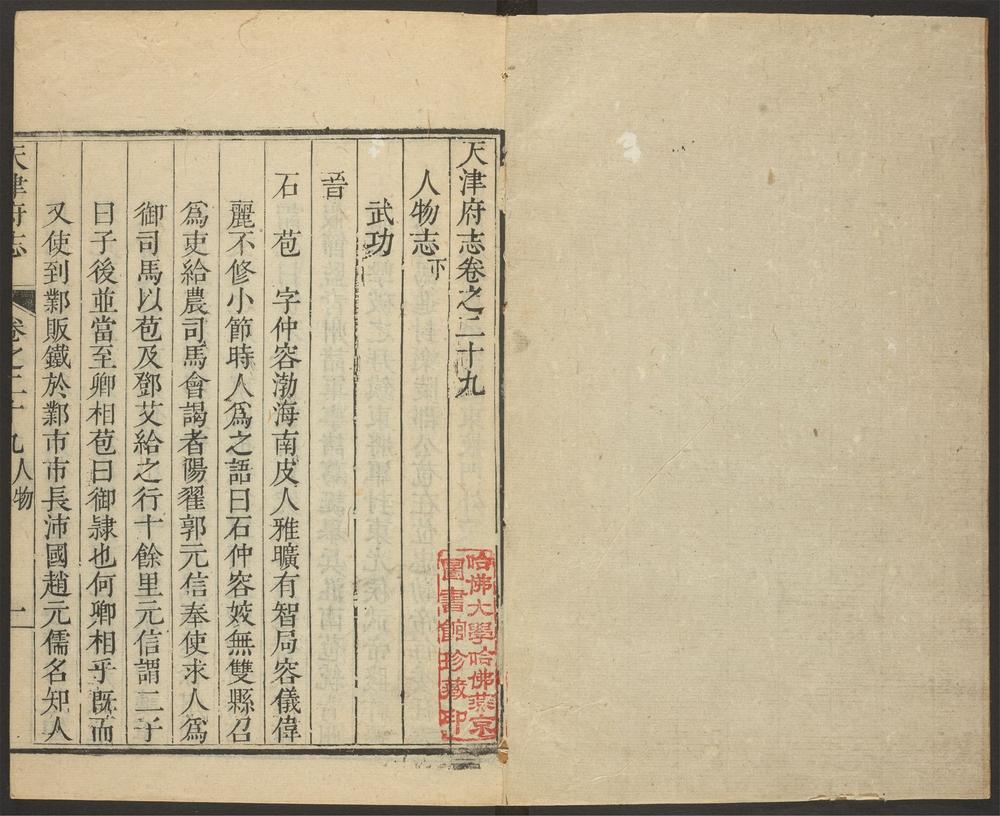 天津府志卷之二十九
人物志下
武功
晉
石苞 字仲容渤海南皮人雅曠有智局容儀偉
麗不修小節時人爲之語曰石仲容姣無雙縣召
爲吏給農司馬會謁者陽翟郭元信奉使求人爲
御司馬以苞及鄧艾給之行十餘里元信謂二子
曰子後並當至卿相苞曰御隷也何卿相乎既而
又使到鄴販鐵於鄴市市長沛國趙元儒名知人
天津府志 卷之二十九人物 一
哈佛大學哈佛燕京
圖書館珍藏印